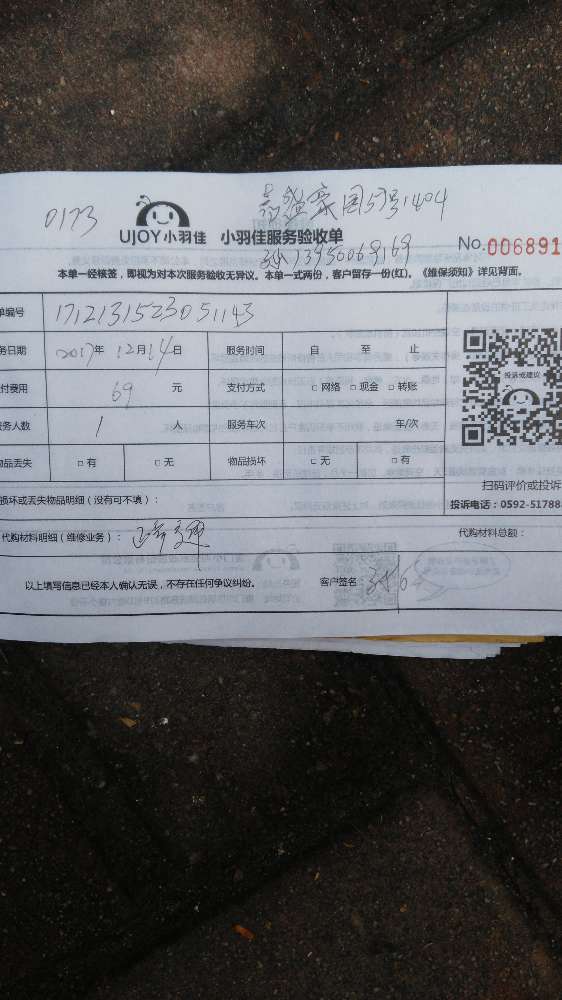 0173
UJOY小羽佳 小羽佳服务验收单
No.006891
本单一经核签，即视为对本次服务验收无异议。本单一式两份，客户留存一份(红)。《维保须知》详见背面。
单编号 1712131523051143
务日期 2017年 12月14日 服务时间 自 至 止
付费用 69 元 支付方式 □ 网络 □ 现金 □ 转账
投诉或建议
服务人数 1 人 服务车次 车/次
物品丢失 □ 有 □ 无 物品损坏 □ 无 □ 有
扫码评价或投诉
损坏或丢失物品明细（没有可不填）：
投诉电话：0592-51788
代购材料明细（维修业务）：
代购材料总额：
以上填写信息已经本人确认无误，不存在任何争议纠纷。 客户签名：